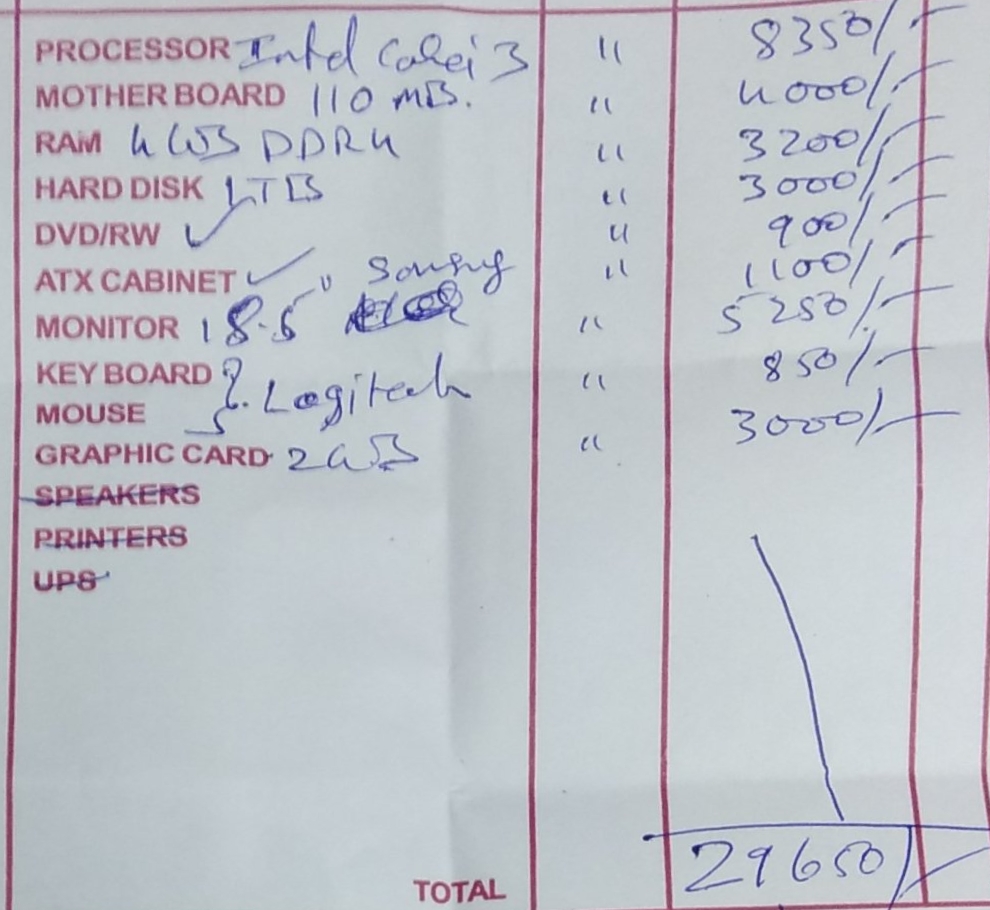 PROCESSOR Intel Corei 3 " 8350/-
MOTHER BOARD 110 MB. " 4000/-
RAM 4 GB DDR4 " 3200/-
HARD DISK 1TB " 3000/-
DVD/RW ✓ " 900/-
ATX CABINET ✓ " 1100/-
MONITOR 18.5" " 5250/-
KEY BOARD } Logitech " 850/-
MOUSE
GRAPHIC CARD 2GB " 3000/-
SPEAKERS
PRINTERS
UPS
TOTAL 29650/-